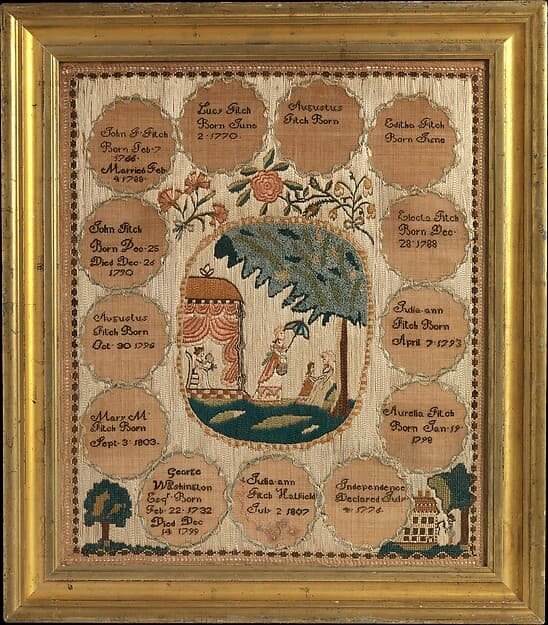 John F. Fitch
Born Feb-7
1766.
Married Feb
4 1788.
Lucy Fitch
Born June
2-1770.
Augustus
Fitch Born
Editha Fitch
Born June
John Fitch
Born Dec-25
Died Dec-26
1790
Electa Fitch
Born Dec-
28-1788
Augustus
Fitch Born
Oct-30 1796
Julia-ann
Fitch Born
April 7-1793
Mary M
Fitch Born
Sept-3-1803.
Aurelia Fitch
Born Jan-19-
1798
George
Washington
Esqr Born
Feb-22-1732
Died Dec
14 1799
Julia-ann
Fitch Hatfield
July 2 1807
Independence
Declared July
4 1776.